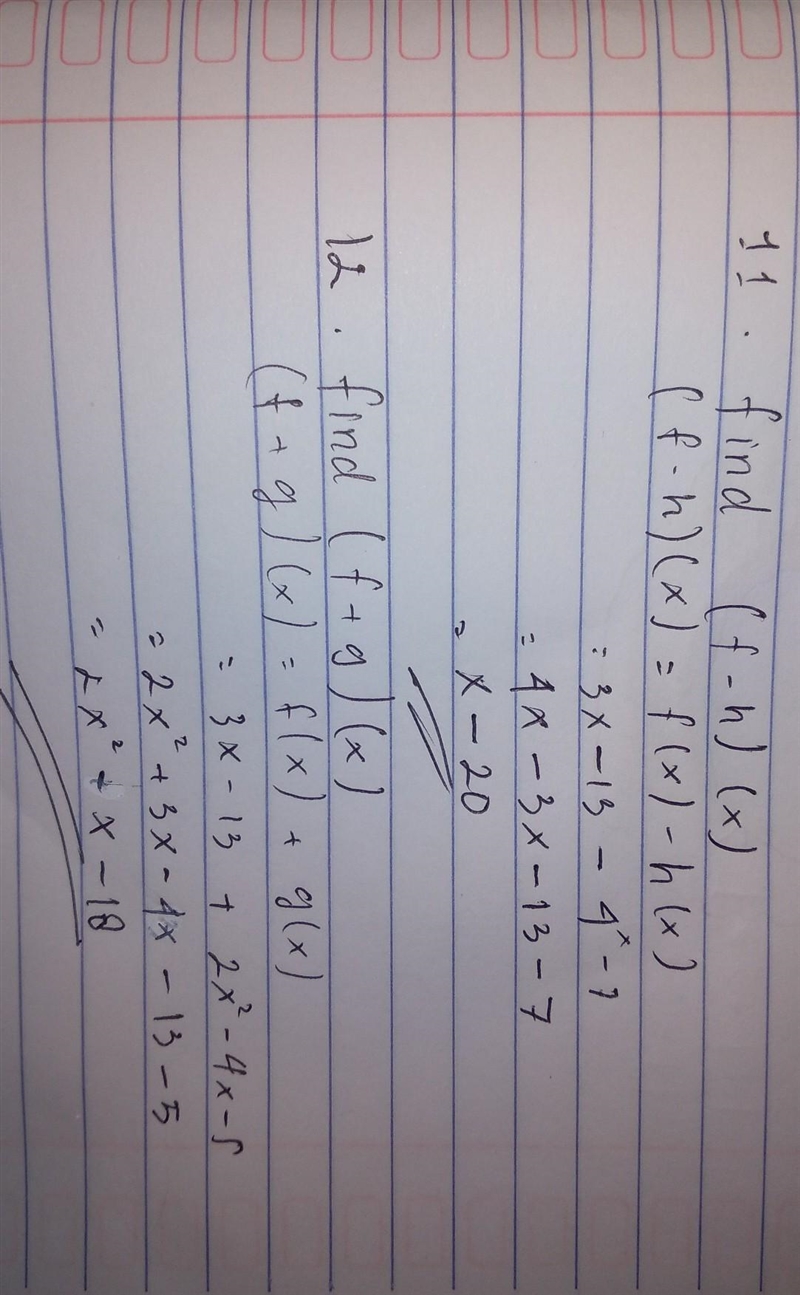 11. find (f-h)(x)
(f-h)(x) = f(x) - h(x)
= 3x - 13 - 4ˣ - 7
= 4x - 3x - 13 - 7
= x - 20
12. find (f+g)(x)
(f+g)(x) = f(x) + g(x)
= 3x - 13 + 2x² - 4x - 5
= 2x² + 3x - 4x - 13 - 5
= 2x² + x - 18